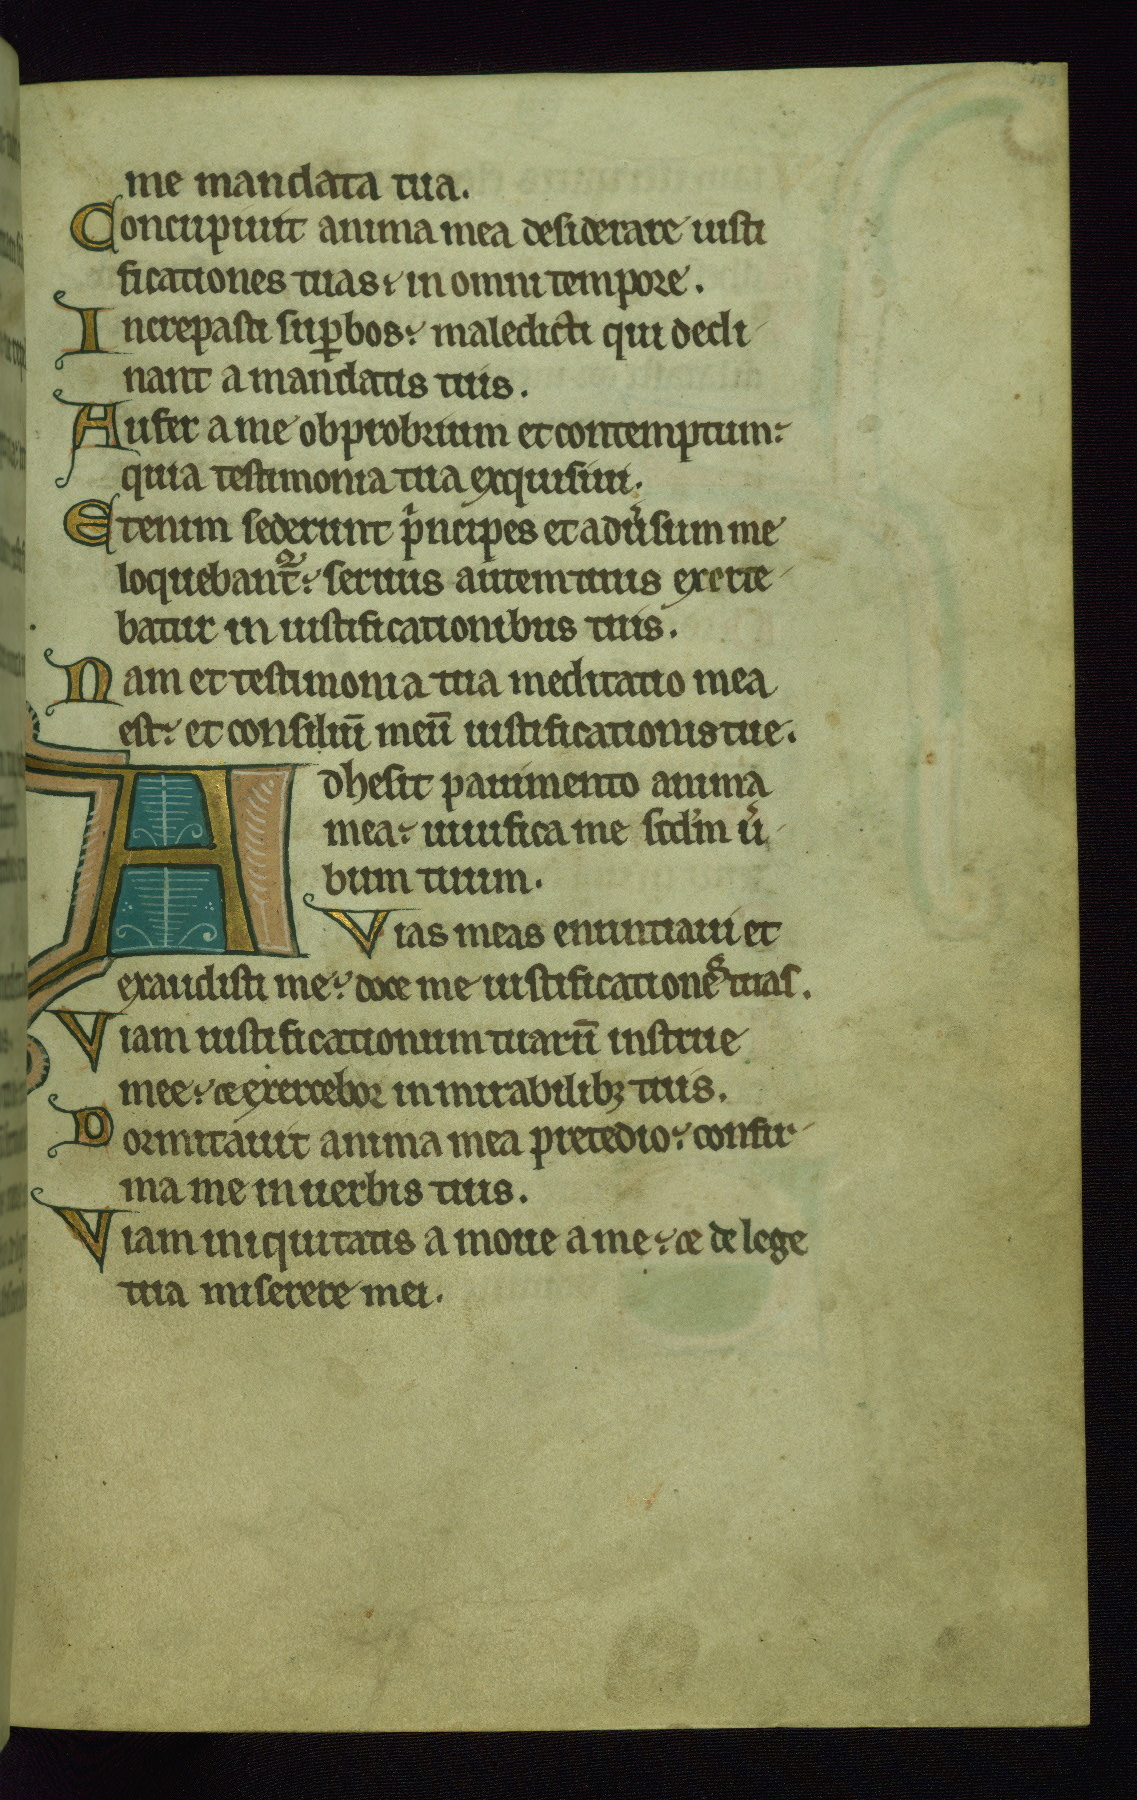 me mandata tua.
Concupiuit anima mea desiderare iusti
ficationes tuas: in omni tempore.
Increpasti suꝑbos: maledicti qui decli
nant a mandatis tuis.
Aufer a me obprobrium et contemptum:
quia testimonia tua exquisiui.
Etenim sederunt pͥncipes et adu᷑sum me
loquebant᷑: seruus autem tuus exerce
batur in iustificationibus tuis.
Nam et testimonia tua meditatio mea
est: et consiliū meū iustificationis tue.
Adhesit pauimento anima
mea: uiuifica me scd̓m u᷑
bum tuum.
Vias meas enuntiaui et
exaudisti me: doce me iustificationes tuas.
Viam iustificationum tuarū instrue
mee: et exercebor in mirabilibꝫ tuis.
Dormitauit anima mea pre tedio: confir
ma me in uerbis tuis.
Viam iniquitatis amoue a me: et de lege
tua miserere mei.